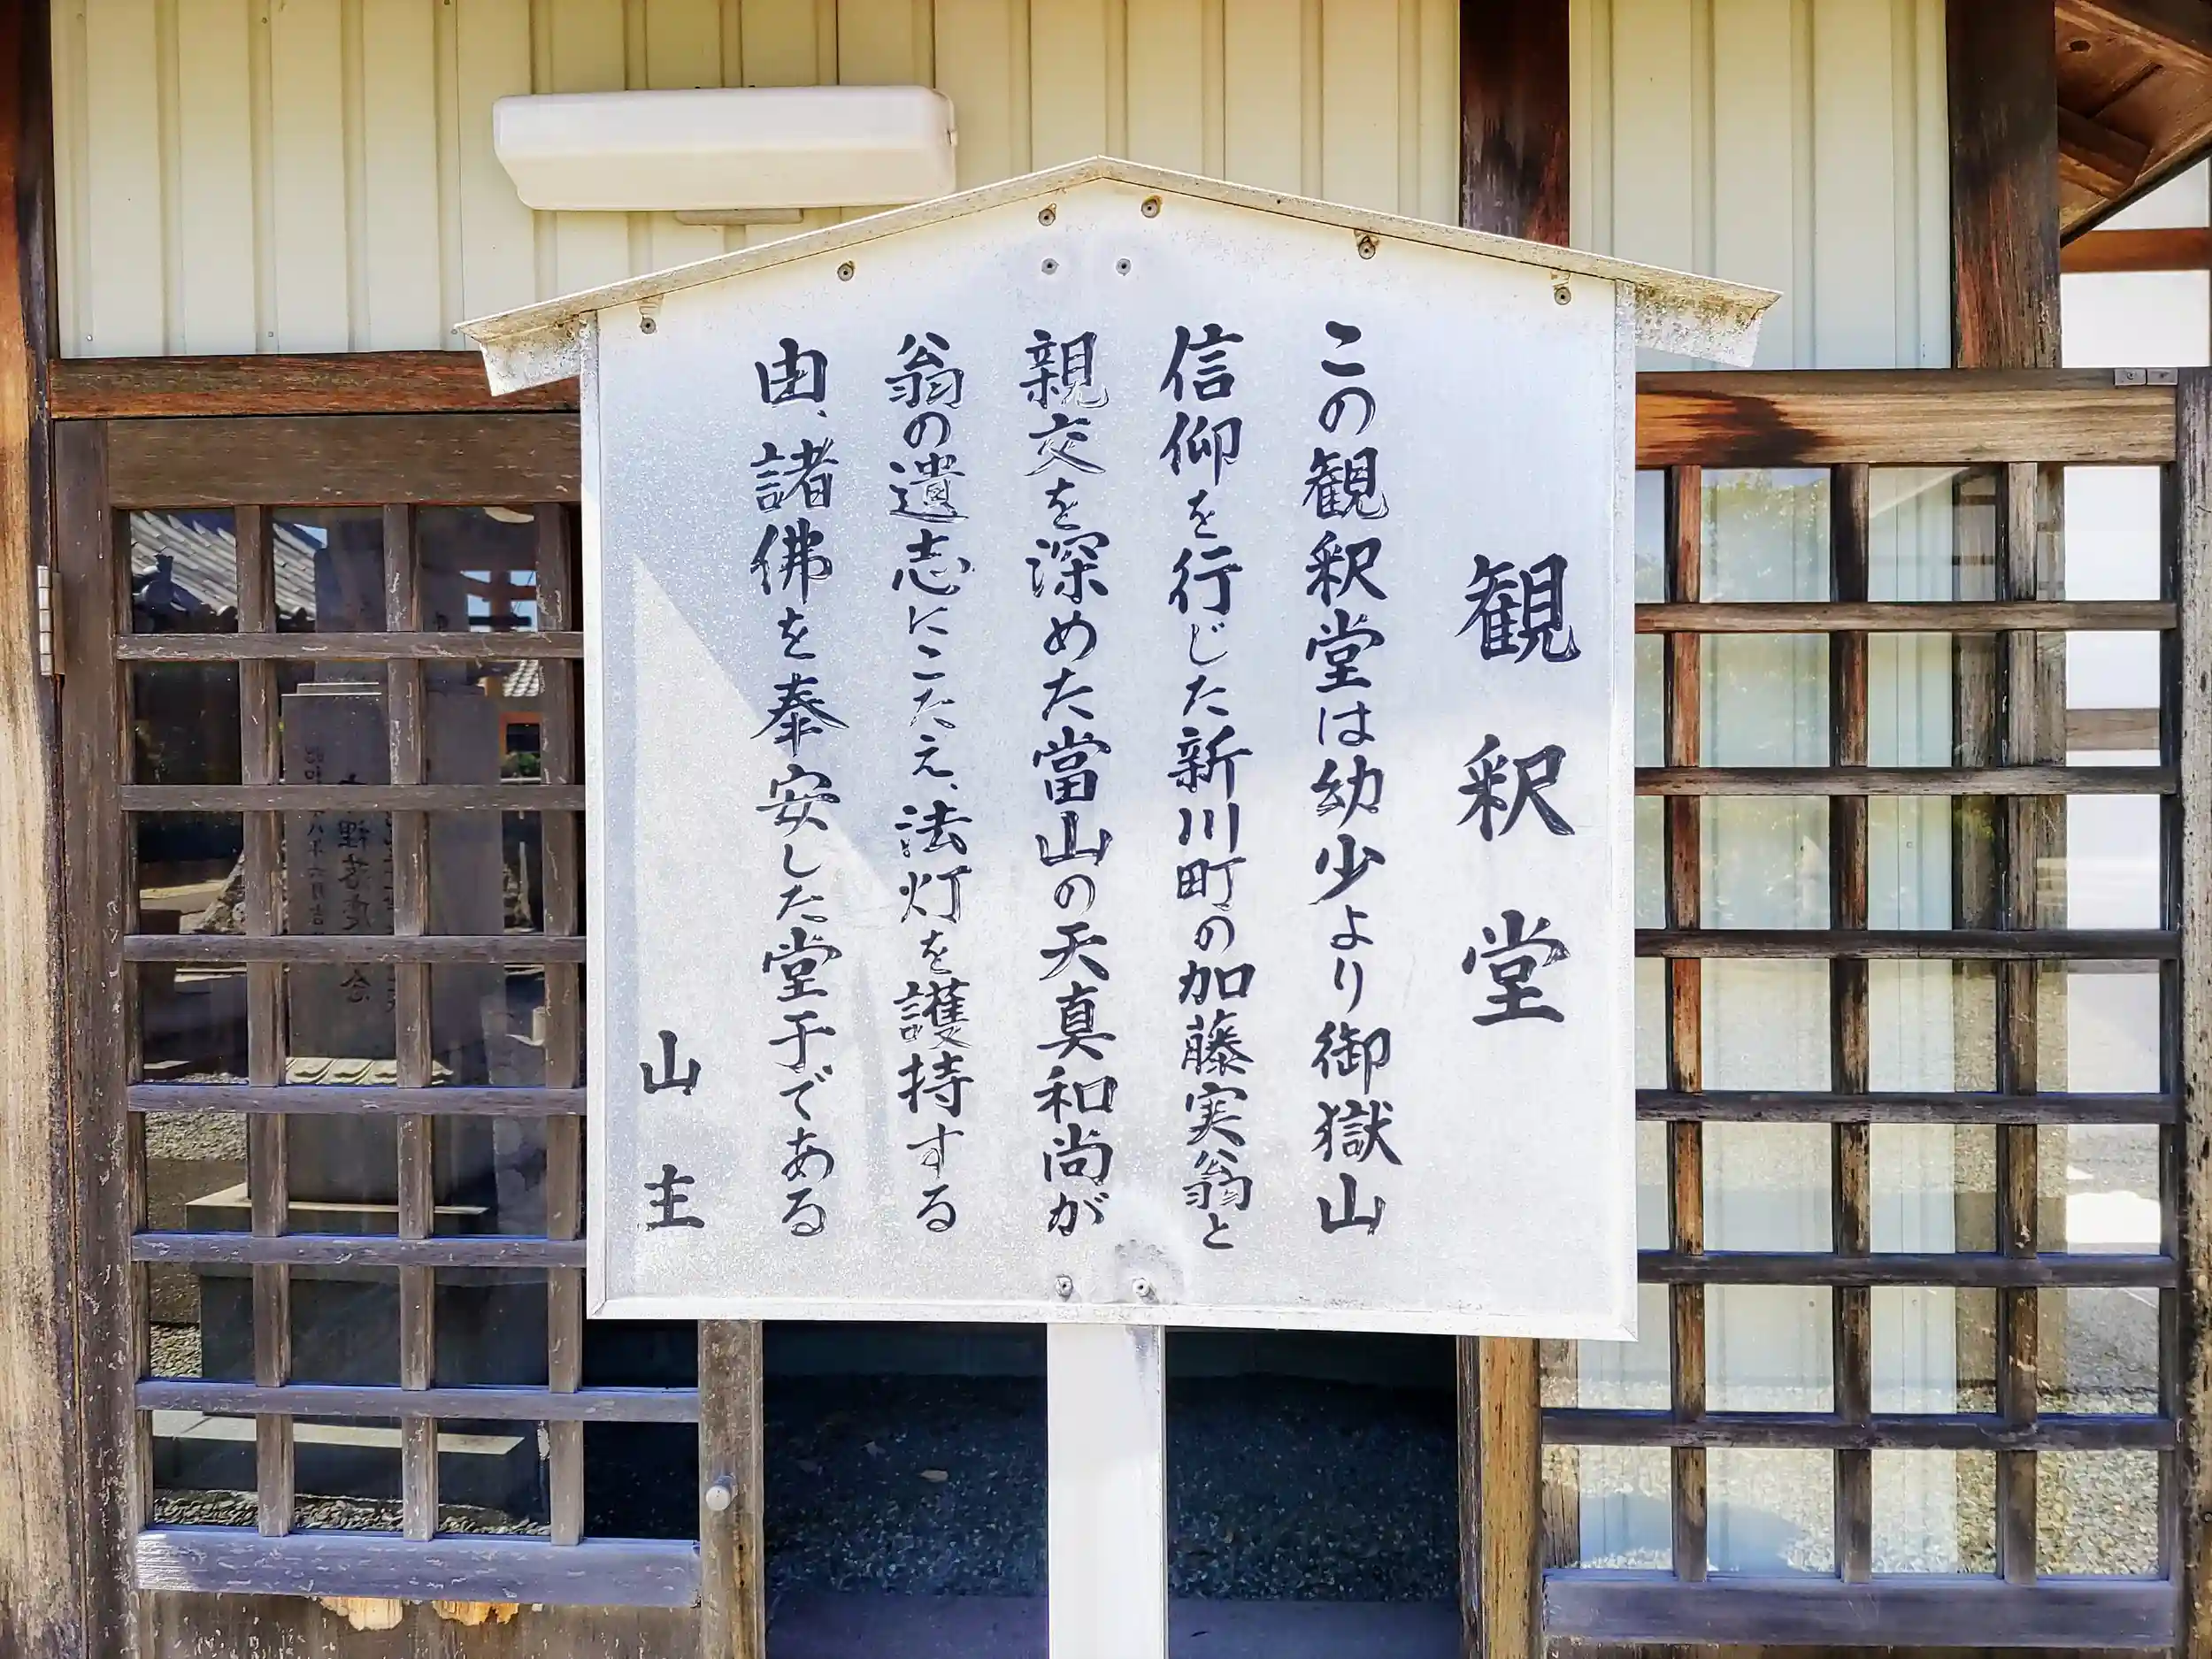 観釈堂
この観釈堂は幼少より御獄山
信仰を行じた新川町の加藤実翁と
親交を深めた當山の天真和尚が
翁の遺志にこたえ、法灯を護持する
由、諸佛を奉安した堂宇である
山主